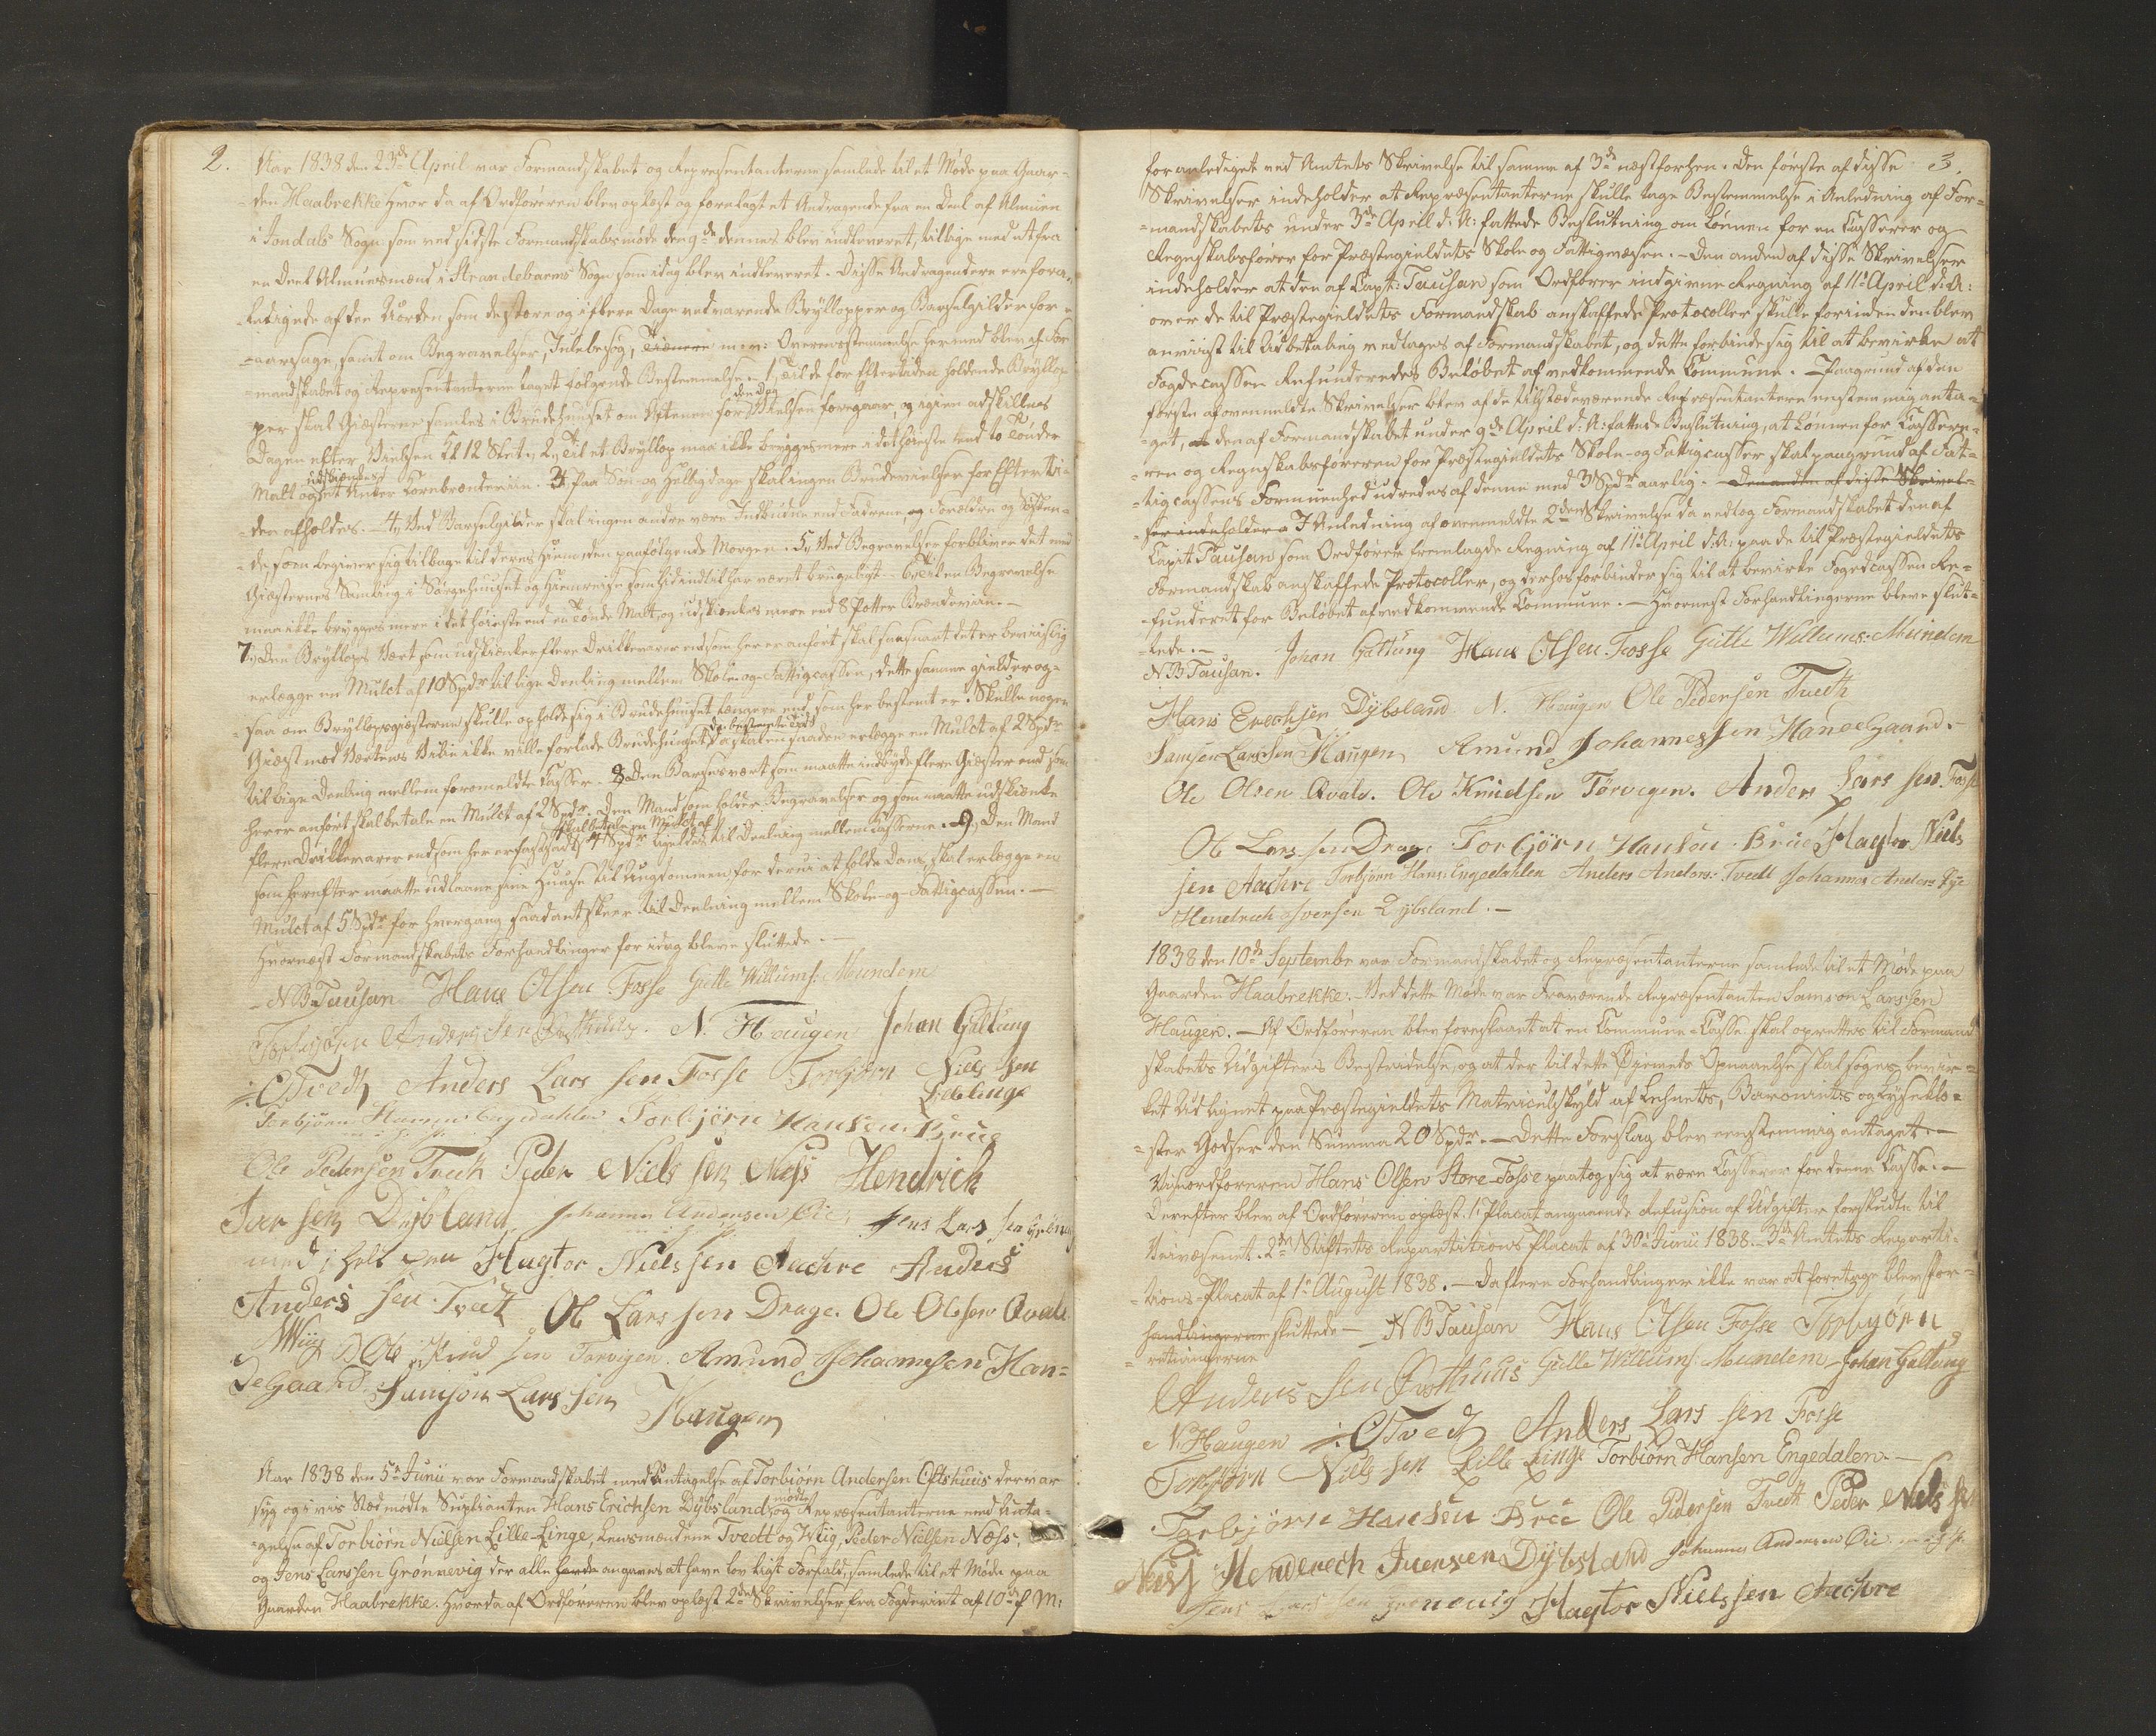 2.
Aar 1838 den 23de April var Formandskabet og Repræsentanterne samlede til et Møde paa Gaar-
-den Haabrekke hvor da af Ordføreren blev oplæst og forelagt et Andragende fra en Deel af Almuen
i Jondals Sogn som ved sidste Formandskabsmøde den 9de dennes blev indleveret, tillige med et fra
en Deel Almuesmænd i Strandebarms Sogn som idag blev indleveret. Disse Andragender ere foran-
-ledigede af den Uorden som de store og i flere Dage vedvarende Brylloper og Barselgilder for-
-aarsage, samt om Begravelser, Julebesøg, m: v: Overeensstemmelse hermed blev af For-
-mandskabet og Repræsentanterne taget følgende Bestemmelse. 1, Til de for Eftertiden holdende Bryllop-
den Dag
per skal Giæsterne samles i Brudehuuset om Aftenen før Vielsen foregaar, og igien adskilles
Dagen efter Vielsen Kl 12 Slet. 2, Til et Bryllup maa ikke brygges mere i det høieste end to Tønder
udskiænkes
Malt og et Anker Kornbrændeviin. 3, Paa Søn- og Helligdage skal ingen Brudevielser for Efterti-
-den afholdes. 4, Ved Barselgilder skal ingen andre være Indbudne end Faddere, og Forældre og Søsken-
-de, som begiver sig tilbage til deres Hiem den paafølgende Morgen. 5, Ved Begravelser forbliver det med
Giæsternes Samling i Sørgehuuset og Hiemreise som hidindtil har været brugeligt. 6, Til en Begravelse
maa ikke brygges mere i det høieste end en Tønde Malt, og udskiænkes mere end 8 Potter Brændeviin.
7, Den Bryllops Vært som udskiænker flere Drikkevarer end som her er anført skal saasnart det er beviislig
erlægge en Mulct af 10 Spdr til lige Deeling mellem Skole- og Fattigcassen, dette samme gielder og-
-saa om Bryllopsgiæsterne skulle opholde sig i Brudehuuset længere end som her bestemt er. Skulle nogen
da bestemte Tid
Giæst mod Værtens Villie ikke ville forlade Brudehuuset, da skal en saadan erlægge en Mulct af 2 Spdr
til lige Deeling mellem foromeldte Casser. 8, Den Barselsvært som maatte indbyde flere Giæster end som
her er anført skal betale en Mulct af 2 Spdr. Den Mand som holder Begravelser og som maatte udskiænke
skal betale en Mulct af
flere Drikkevarer end som her er fastsadt 4 Spdr ligeledes til Deeling mellem Casserne. 9, Den Mand
som herefter maatte udlaane sine Huuse til Ungdommen for derui at holde Dands, skal erlægge en
Mulct af 5 Spdr for hvergang saadant skeer til Deeling mellem Skole- og Fattigcassen.
Hvornæst Formandskabets Forhandlinger for idag bleve sluttede.
NB Tausan Hans Olsen Fosse Gutle Willums: Mundem
Torbjørn Anders Sen Øfsthuus. N. Haugen Johan Galtung
C Tvedt Anders Lars sen Fosse Torbjørn Niels sen
Lillelinge
Torbjørn Hansen Engedahlen Torbjörn Hansen Brue
Ole Pedersen Tvedt Peder Niels sen Næss Hendrich
Iver sen Dijbland Johannes Andersen Øie Jens Lars sen Grönevig
med i Holt Pen Hagtor Nielssen Aachre Anders
Anders sen Tvedt Ole Larssen Drage. Ole Olssen Qvale
Wiig Ole Knud sen Tørvigen. Amund Johannesen Han=
DeGaard Samson Lars sen Haugen
Aar 1838 den 5te Junii var Formandskabet med Undtagelse af Torbiørn Andersen Øfsthuus der var
syg og i vis Sted mødte Suplianten Hans Erichsen Dybsland, og
mødte
Repræsentanterne med Undta-
-gelse af Torbiørn Nielsen Lille-Linge, Lensmændene Tvedt og Wiig, Peder Nielsen Næss,
og Jens Larssen Grønnevig der alle havde angives at have lovligt Forfald, samlede til et Møde paa
Gaarden Haabrekke. Hvorda af Ordføreren blev oplæst 2de Skrivelser fra Fogderiet af 10de f: M:
3.
foranlediget ved Amtets Skrivelse til samme af 3de næstforhen. Den første af disse
Skrivelser indeholder at Repræsentanterne skulle tage Bestemmelse i Anledning af For-
-mandskabets under 3de April d: A: fattede Beslutning om Lønnen for en Casserer og
Regnskabsfører for Præstegieldets Skole og Fattigvæsen. Den anden af disse Skrivelser
indeholder at den af Capt: Tausan som Ordfører indgivne Regning af 11te April d: A:
over de til Præstegieldets Formandskab anskaffede Protocoller skulle forinden den blev
anviist til Udbetaling vedtages af Formandskabet, og dette forbinde sig til at bevirke at
Fogdecassen Refunderedes Beløbet af vedkommende Commune. Paa grund af den
første af ovenmeldte Skrivelser blev af de tilstædeværende Repræsentantere eenstemmig anta-
-get, den af Formandskabet under 9de April d: A: fattede Beslutning, at Lønnen for Cassere-
-ren og Regnskabsføreren for Præstegieldets Skole- og Fattigcasser skal paa grund af Fat-
-tigcassens Formuenhed udredes af denne med 3 Spdr aarlig. Den anden af disse Skrivel-
ser indeholder I Anledning af ovenmeldte 2den Skrivelse da vedtog Formandskabet den af
Capit Tausan som Ordfører fremlagde Regning af 11te April d: A: paa de til Præstegieldets
Formandskab anskaffede Protocoller, og derhos forbinder sig til at bevirke Fogedcassen Re-
-funderet for Beløbet af vedkommende Commune. Hvornest Forhandlingerne bleve slut-
-tede. Johan Galtung Hans Olsen Fosse Gutle Willums: Mundem
NB Tausan.
Hans Erechsen Dybsland N. Haugen Ole Pedersen Tvedt
Samson Larssen Haugen Amund Johannessen HandeGaard.
Ole Olsen Qvale. Ole Knudsen Tørvegen. Anders Lars sen Fosse
Ole Lars sen Drage Torbjörn Hansen Brue Hagtor Niels
sen Aachre Torbjørn Hans: Engedahlen Anders Anders: Tvedt Johannes Anders Øje
Hendrich Iversen Dybsland.
1838 den 10de Septembr var Formandskabet og Repræsentanterne samlede til et Møde paa
Gaarden Haabrekke. Ved dette Møde var Fraværende Repræsentanten Samson Larssen
Haugen. Af Ordføreren blev foreslaaet at en Commune-Casse skal oprettes til Formand-
skabets Udgifters Bestridelse, og at der til dette Øiemeds Opnaaelse skal søges bevir-
ket Udlignet paa Præstegieldets Matriculskyld af Lehnets, Baroniets og Lyseklo-
-ster Godser den Summa 20 Spdr. Dette Forslag blev eenstemmig antaget.
Viceordføreren Hans Olsen Store-Fosse paatog sig at være Casserer for denne Casse.
Derefter blev af Ordføreren oplæst. 1te Placat angaaende Refusion af Udgifter forskudte til
Veivæsenet. 2de Stiftets Repartitions Placat af 30te Junii 1838. 3de Amtets Reparti-
-tions-Placat af 1te August 1838. Da flere Forhandlinger ikke var at foretage blev For-
handlingerne sluttede NB Tausan Hans Olsen Fosse Torbjørn
retningerne
Anders Sen Øvsthuus Gutle Willums: Mundem Johan Galtung
N. Haugen C Tvedt Anders Lars sen Fosse
Torbjørn Niels sen Lille Linge Torbiörn Hansen Engedalen.
Torbjörn Hansen Brue Ole Pedersen Tvedt Peder Niels sen
Næss Henderech Iversen Dybsland Johannes Andersen Øie
Jens Lars sen gronevig Hagtor Nielssen Aachre